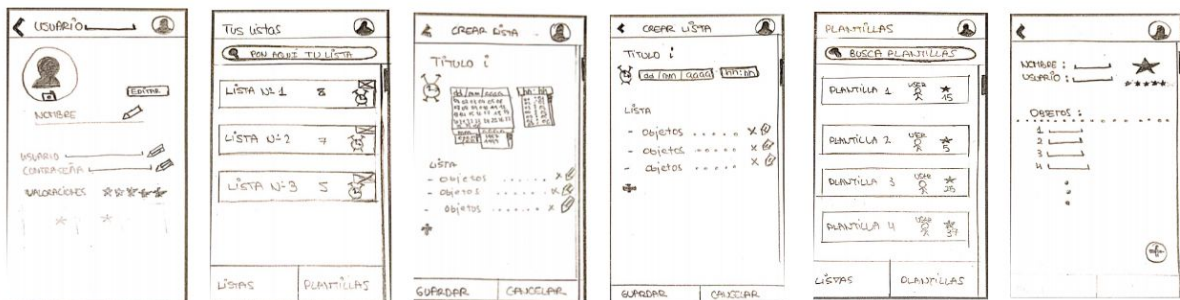 USUARIO
EDITAR
NOMBRE
USUARIO
CONTRASEÑA
VALORACIONES
Tus listas
PON AQUI TU LISTA
LISTA Nº 1 8
LISTA Nº 2 7
LISTA Nº 3 5
LISTAS PLANTILLAS
CREAR LISTA
TÍTULO
dd/mm/aaaa hh:hh
LISTA
- objetos ...... x
- objetos ...... x
- objetos ...... x
+
GUARDAR CANCELAR
CREAR LISTA
TÍTULO
dd/mm/aaaa hh:hh
LISTA
- objetos ..... x
- objetos ..... x
- objetos ..... x
+
GUARDAR CANCELAR
PLANTILLAS
BUSCA PLANTILLAS
PLANTILLA 1 USER 15
PLANTILLA 2 USER 5
PLANTILLA 3 USER 25
PLANTILLA 4 USER 37
LISTAS PLANTILLAS
NOMBRE :
USUARIO :
OBJETOS :
1
2
3
4
+